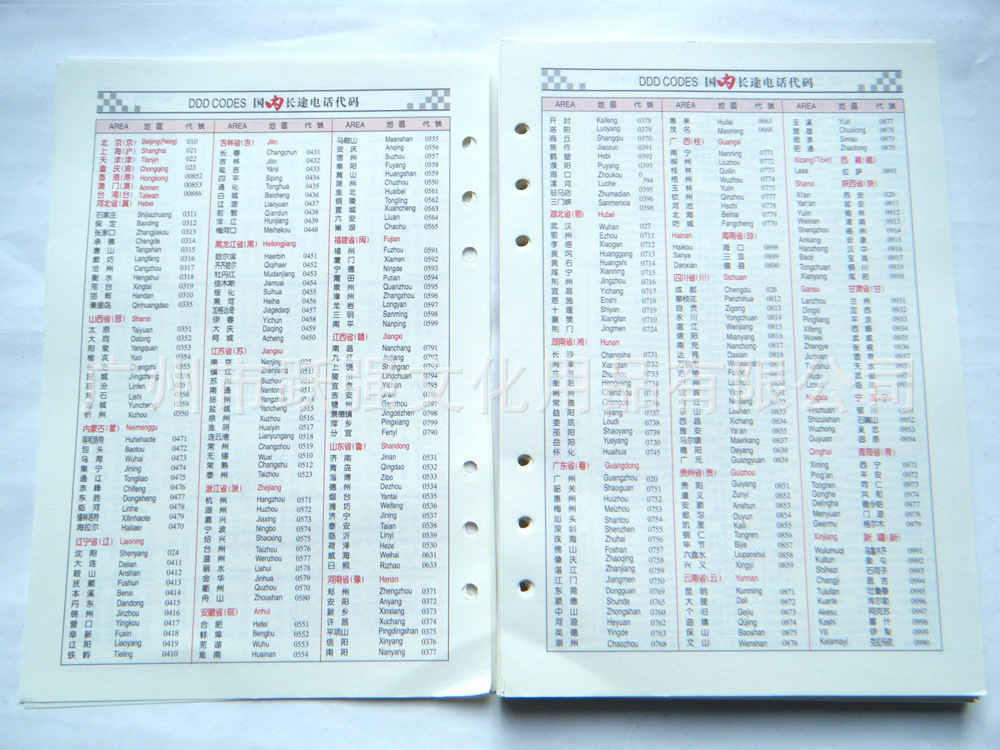 DDD CODES 国内长途电话代码
AREA 地區 代號 AREA 地區 代號 AREA 地區 代號
北京(京) Beijing(Peking) 010
上海(沪) Shanghai 021
天津(津) Tianjin 022
重庆(渝) Chongqing 023
香港(港) Hongkong 00852
澳门(澳) Aomen 00853
台湾(台) Taiwan 00886
河北省(冀) Hebei
石家庄 Shijiazhuang 0311
保定 Baoding 0312
张家口 Zhangjiakou 0313
承德 Chengde 0314
唐山 Tangshan 0315
廊坊 Langfang 0316
沧州 Cangzhou 0317
衡水 Hengshui 0318
邢台 Xingtai 0319
邯郸 Handan 0310
秦皇岛 Qinhuangdao 0335
山西省(晋) Shanxi
太原 Taiyuan 0351
大同 Datong 0352
阳泉 Yangquan 0353
榆次 Yuci 0354
临汾 Linfen
石 Lishi 0358
城 Yuncheng 0359
忻州 Xizhou 0350
内蒙古(蒙) Neimenggu
呼和浩特 Huhehaote 0471
包头 Baotou 0472
乌海 Wuhai 0473
集宁 Jining 0474
通辽 Tongliao 0475
赤峰 Chifeng 0476
东胜 Dongsheng 0477
临河 Linhe 0478
锡林浩特 Xilinhaote 0479
海拉尔 Hailaer 0470
辽宁省(辽) Liaoning
沈阳 Shenyang 024
大连 Dalian 0411
鞍山 Anshan 0412
抚顺 Fushun 0413
本溪 Benxi 0414
丹东 Dandong 0415
锦州 Jinzhou 0416
营口 Yingkou 0417
阜新 Fuxin 0418
辽阳 Liaoyang 0419
铁岭 Tieling 0410
吉林省(吉) Jilin
长春 Changchun 0431
吉林 Jilin 0432
延吉 Yanji 0433
四平 Siping 0434
通化 Tonghua 0435
白城 Beicheng 0436
辽源 Liaoyuan 0437
前敦 Qiandun 0438
浑江 Hunjiang 0439
梅河口 Meihekou 0448
黑龙江省(黑) Heilongjiang
哈尔滨 Haerbin 0451
齐齐哈尔 Qiqihaer 0452
牡丹江 Mudanjiang 0453
佳木斯 Jiamusi 0454
绥化 Suihua 0455
黑河 Heihe 0456
加格达奇 Jiagedaqi 0457
伊春 Yichun 0458
大庆 Daqing 0459
阿城 Acheng 0450
江苏省(苏) Jiangsu
南京 Nanjing 025
镇江 Zhenjiang 0511
苏州 Suzhou 0512
南通 Nantong 0513
扬州 Yangzhou 0514
盐城 Yancheng 0515
徐州 Xuzhou 0516
淮阴 Huaiyin 0517
连云港 Lianyungang 0518
常州 Changzhou 0519
无锡 Wuxi 0510
常熟 Changshu 0512
泰州 Taizhou 0523
浙江省(浙) Zhejiang
杭州 Hangzhou 0571
湖州 Huzhou 0572
嘉兴 Jiaxing 0573
宁波 Ningbo 0574
绍兴 Shaoxing 0575
台州 Taizhou 0576
温州 Wenzhou 0577
丽水 Lishui 0578
金华 Jinhua 0579
衢州 Quzhou 0570
舟山 Zhoushan 0580
安徽省(皖) Anhui
合肥 Hefei 0551
蚌埠 Bengbu 0552
芜湖 Wuhu 0553
淮南 Huainan 0554
马鞍山 Maanshan 0555
安庆 Anqing 0556
宿州 Suzhou 0557
阜阳 Fuyang 0558
黄山 Huangshan 0559
滁州 Chuzhou 0550
淮北 Huaibei 0561
铜陵 Tongling 0562
宣城 Xuancheng 0563
六安 Liuan 0564
巢湖 Chaohu 0565
福建省(闽) Fujian
福州 Fuzhou 0591
厦门 Xiamen 0592
宁德 Ningde 0593
莆田 Putian 0594
泉州 Quanzhou 0595
漳州 Zhangzhou 0596
龙岩 Longyan 0597
三明 Sanming 0598
南平 Nanping 0599
江西省(赣) Jiangxi
南昌 Nanchang 0791
九江 Jiujiang 0792
上饶 Shangrao 0793
宜春 Yichun 0795
吉安 Jian
赣州 Ganzhou 0797
景德镇 Jingdezhen 0798
萍乡 Pingxiang 0799
分宜 Fenyi 0790
山东省(鲁) Shandong
济南 Jinan 0531
青岛 Qingdao 0532
淄博 Zibo 0533
德州 Dezhou 0534
烟台 Yantai 0535
潍坊 Weifang 0536
济宁 Jining 0537
泰安 Taian 0538
临沂 Linyi 0539
荷泽 Heze 0530
威海 Weihai 0631
日照 Rizhao 0633
河南省(豫) Henan
郑州 Zhengzhou 0371
安阳 Anyang 0372
新乡 Xinxiang 0373
许昌 Xuchang 0374
平顶山 Pingdingshan 0375
信阳 Xinyang 0376
南阳 Nanyang 0377
DDD CODES 国内长途电话代码
AREA 地區 代號 AREA 地區 代號 AREA 地區 代號
开封 Kaifeng 0378
洛阳 Luoyang 0379
商丘 Shangqiu 0370
焦作 Jiaozuo 0391
鹤壁 Hebi 0392
濮阳 Puyang 0393
周口 Zhoukou 0394
漯河 Luohe
驻马店 Zhumadian 0396
三门峡 Sanmenxia 0398
湖北省(鄂) Hubei
武汉 Wuhan 027
鄂州 Ezhou 0711
孝感 Xiaogan 0712
黄冈 Huanggang 0713
黄石 Huangshi 0714
咸宁 Xianning 0715
荆州 Jingzhou 0716
宜昌 Yichang 0717
恩施 Enshi 0718
十堰 Shiyan 0719
襄樊 Xiangfan 0710
荆门 Jingmen 0724
湖南省(湘) Hunan
长沙 Changsha 0731
湘潭 Xiangtan 0732
衡阳 Hengyang 0734
郴州 Chenzhou
益阳 Yiyang 0737
娄底 Loudi 0738
邵阳 Shaoyang 0739
岳阳 Yueyang 0730
怀化 Huaihua 0745
广东省(粤) Guangdong
广州 Guangzhou 020
韶关 Shaoguan 0751
惠州 Huizhou 0752
梅州 Meizhou 0753
汕头 Shantou 0754
深圳 Shenzhen 0755
珠海 Zhuhai 0756
佛山 Foshan 0757
肇庆 Zhaoqing 0758
湛江 Zhanjiang 0759
江门 Jiangmen 0750
东莞 Dongguan 0769
顺德 Shunde 0765
中山 Zhongshan 0760
河源 Heyuan 0762
英德 Yingde 0763
潮州 Chaozhou 0768
惠来 Huilai 0663
茂名 Maoming 0668
广西(桂) Guangxi
南宁 Nanning 0771
柳州 Liuzhou 0772
桂林 Guilin 0773
梧州 Wuzhou 0774
玉林 Yulin 0775
钦州 Qinzhou 0777
河池 Hechi 0778
北海 Beihai 0779
防城 Fangcheng 0770
Hainan 海南省(琼)
Haikou 海口 0898
Sanya 三亚 0899
Danxian 儋县 0890
四川省(川) Sichuan
成都 Chengdu 028
攀枝花 Panzhihua 0812
自贡 Zigong 0813
永川 Yongchuan 0814
温江 Wenjiang 0815
绵阳 Mianyang 0816
南充 Nanchong 0817
达县 Daxian 0818
乐山 Leshan 0833
西昌 Xichang 0834
雅安 Ya'an 0835
马尔康 Maerkang 0837
德阳 Deyang 0838
广元 Guangyuan 0839
贵州省(贵) Guizhou
贵阳 Guiyang 0851
遵义 Zunyi 0852
安顺 Anshun 0853
都匀 Duyun 0854
凯里 Kaili 0855
铜仁 Tongren 0856
毕节 Bijie 0857
六盘水 Liupanshui 0858
兴义 Xingyi 0859
云南省(云) Yunnan
昆明 Kunming 0871
大理 Dali 0872
个旧 Gejiu 0873
曲靖 Qujing 0874
保山 Baoshan 0875
文山 Wenshan 0876
玉溪 Yuxi 0877
楚雄 Chuxiong 0878
思茅 Simao 0879
昭通 Zhaotong 0870
Xizang(Tibet) 西藏(藏)
Lasa 拉萨 0891
Shanxi 陕西省(陕)
Xi'an 西安 029
Yan'an 延安 0911
Yulin 榆林 0912
Weinan 渭南 0913
Shangzhou 商州 0914
Ankang 安康 0915
Hanzhong 汉中 0916
Baoji 宝鸡 0917
Tongchuan 铜川 0919
Xianyang 咸阳 0910
Gansu 甘肃省(甘)
Lanzhou 兰州 0931
Dingxi 定西 0932
Pingliang 平凉 0933
Xifeng 西峰 0934
Wuwei 武威 0935
Zhangye 张掖 0936
Jiuquan 酒泉 0937
Yinchuan 银川
Shizuishan 石嘴山 0952
Wuzhong 吴忠 0953
Guyuan 固原 0954
Qinghai 青海省(青)
Xining 西宁 0971
Ping'an 平安 0972
Tongren 同仁 0973
Gonghe 共和 0974
Delingha 德令哈 0977
Menyuan 门源 0978
Geermu 格尔木 0979
Xinjiang 新疆(新)
Wulumuqi 乌鲁木齐 0991
Kuitun 奎屯 0992
Shihezi 石河子 0993
Changji 昌吉 0994
Tulufan 吐鲁番 0995
Kuerle 库尔勒 0996
Akesu 阿克苏 0997
Kashi 喀什 0998
Yili 伊犁 0999
Kelamayi 克拉玛依 0990